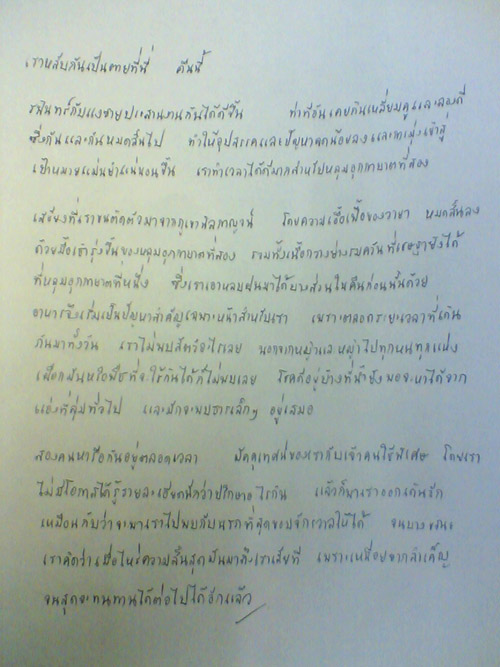 เราหลับกันเป็นตายที่นี่ คืนนี้
รพินทร์กับแงซายประสานงานกันได้ดีขึ้น ท่าทีอันเคยกินเหลี่ยมคูและลองดี
ซึ่งกันและกันหมดสิ้นไป ทำให้อุปสรรคและปัญหาลดน้อยลงและการมุ่งเข้าสู่
เป้าหมายแม่นยำแน่นอนขึ้น เราทำเวลาได้ดีมากสำหรับหลุมอุกกาบาตที่สอง
เสบียงที่เราขนติดตัวมาจากภูเขานิลกาญจน์ โดยความเอื้อเฟื้อของวาชา หมดสิ้นลง
ด้วยมื้อเช้ารุ่งขึ้นของหลุมอุกกาบาตที่สอง รวมทั้งเนื้อกวางย่างรมควันที่เชษฐายิงได้
ที่หลุมอุกกาบาตที่หนึ่ง ซึ่งเราเอาหลบฝนมาได้บางส่วนในคืนก่อนนั้นด้วย
อาหารจึงเริ่มเป็นปัญหาสำคัญเฉพาะหน้าสำหรับเรา เพราะตลอดระยะเวลาที่เดิน
กันมาทั้งวัน เราไม่พบสัตว์อะไรเลย นอกจากหญ้าและหญ้าไปทุกหนทุกแห่ง
เผือกมันหรือพืชที่จะใช้กินได้ก็ไม่พบเลย โชคดีอยู่บ้างที่น้ำยังพอจะหาได้จาก
แอ่งที่ลุ่มทั่วไป และมักจะพบธารเล็กๆ อยู่เสมอ
สองคนหารือกันอยู่ตลอดเวลา มัคคุเทศก์ของเรากับเจ้าคนใช้พิเศษ โดยเรา
ไม่มีโอกาสได้รู้รายละเอียดนักว่าปรึกษาอะไรกัน แล้วก็พาเราออกเดินรัก
เหมือนกับว่าจะพาเราไปพบกับนรกที่สุดขอบจักรวาลให้ได้ จนบางขณะ
เราคิดว่าเมื่อไหร่ความสิ้นสุดมันมาถึงเราเสียที เพราะเหนื่อยยากลำเค็ญ
จนสุดจะทนทานได้ต่อไปได้อีกแล้ว